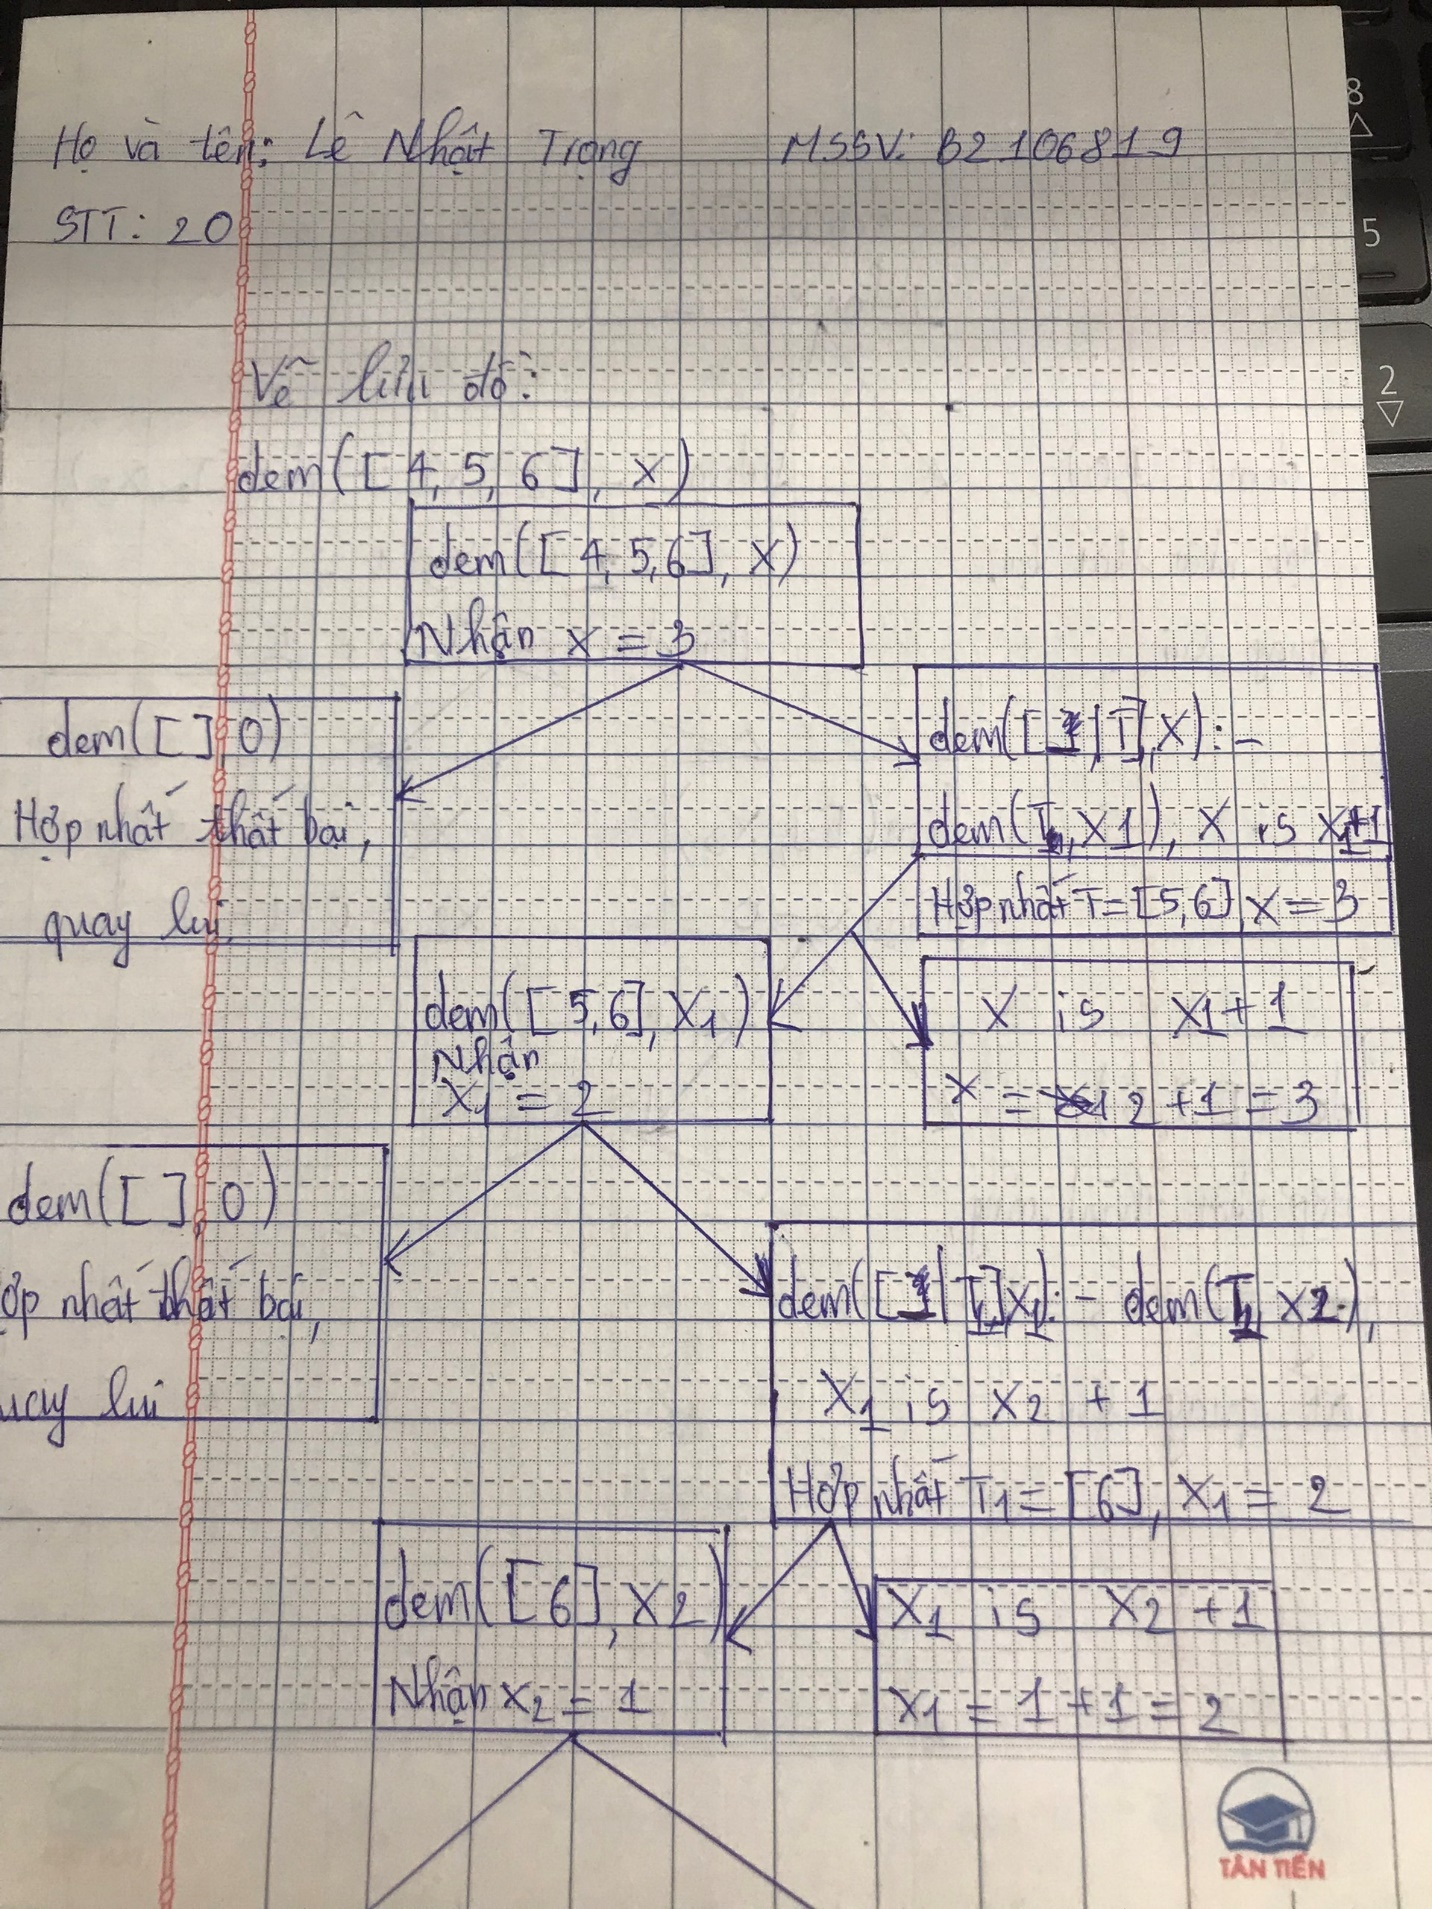 Họ và tên: Lê Nhật Trọng MSSV: B2106819
STT: 20
Vẽ lưu đồ:
dem([4, 5, 6], X)
dem([4, 5, 6], X)
Nhận X = 3
dem([], 0)
Hợp nhất thất bại,
quay lui
dem([_|T], X) :-
dem(T, X1), X is X1+1
Hợp nhất T = [5,6], X = 3
dem([5,6], X1)
Nhận
X1 = 2
X is X1 + 1
X = 2 + 1 = 3
dem([], 0)
ợp nhất thất bại,
uay lui
dem([_|T1], X1) :- dem(T1, X2),
X1 is X2 + 1
Hợp nhất T1 = [6], X1 = 2
dem([6], X2)
Nhận X2 = 1
X1 is X2 + 1
X1 = 1 + 1 = 2
TÂN TIẾN
8
5
2